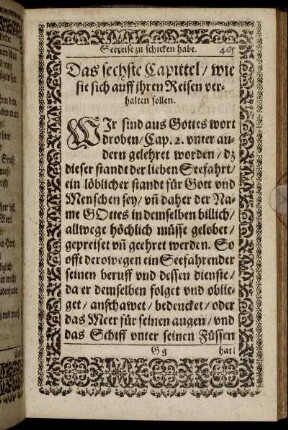 Seereise zu schicken habe. 465
Das sechste Capittel / wie
sie sich auff ihren Reisen ver-
halten sollen.
WIr sind aus Gottes wort
droben / Cap. 2. vnter an-
dern gelehret worden / dz
dieser standt der lieben Seefahrt /
ein löblicher standt für Gott vnd
Menschen sey / vñ daher der Na-
me GOttes in demselben billich /
allwege höchlich müsse gelobet /
gepreiset vñ geehret werden. So
offt derowegen ein Seefahrender
seinen beruff vnd dessen dienste /
da er demselben folget vnd oblie-
get / anschawet / bedencket / oder
das Meer für seinen augen / vnd
das Schiff vnter seinen Füssen
Gg hat /